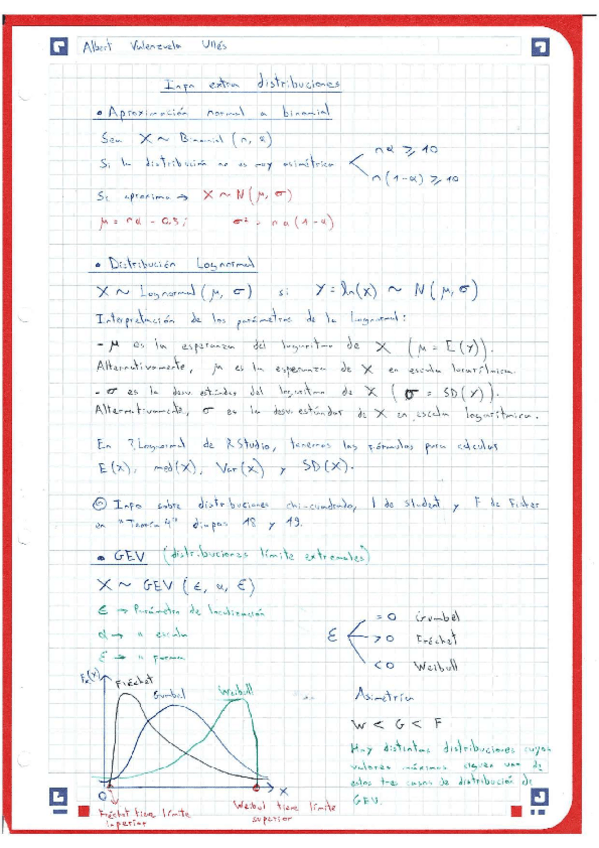 Albert Valenzuela Unés
Info extra distribuciones
• Aproximación normal a binomial
Sea X ~ Binomial (n, α)
Si la distribución no es muy asimétrica
nα ⩾ 10
n(1-α) ⩾ 10
Se aproxima → X ~ N(μ, σ)
μ = nα - 0.5; σ² = nα(1-α)
• Distribución Lognormal
X ~ Lognormal (μ, σ) si Y = ln(X) ~ N(μ, σ)
Interpretación de los parámetros de la lognormal:
- μ es la esperanza del logaritmo de X (μ = E(Y)).
Alternativamente, μ es la esperanza de X en escala logarítmica.
- σ es la desv. estándar del logaritmo de X (σ = SD(Y)).
Alternativamente, σ es la desv. estándar de X en escala logarítmica.
En ?Lognormal de RStudio, tenemos las fórmulas para calcular
E(X), med(X), Var(X) y SD(X).
Info sobre distribuciones chi-cuadrado, t de Student y F de Fisher
en "Teoría 4" diapos 18 y 19.
• GEV (distribuciones límite extremales)
X ~ GEV (ε, α, ξ)
ε → Parámetro de localización
α → " escala
ξ → " forma
ξ
= 0 Gumbel
> 0 Fréchet
< 0 Weibull
Fréchet
Gumbel
Weibull
Asimetría
W < G < F
Hay distintas distribuciones cuyos
valores máximos siguen uno de
estos tres casos de distribución de
GEV.
0
X
Fréchet tiene límite
inferior
Weibull tiene límite
superior